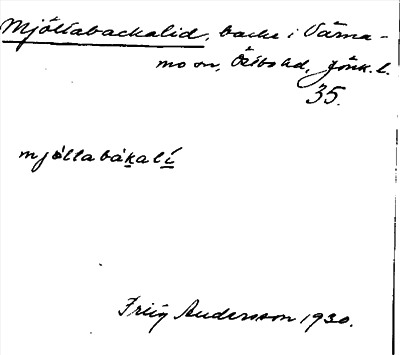 Mjöltabackalid, backe i Värna-
mo sn, Östbo hd, Jönk. l.
35.
mjöltabákalí
Andersson 1930.